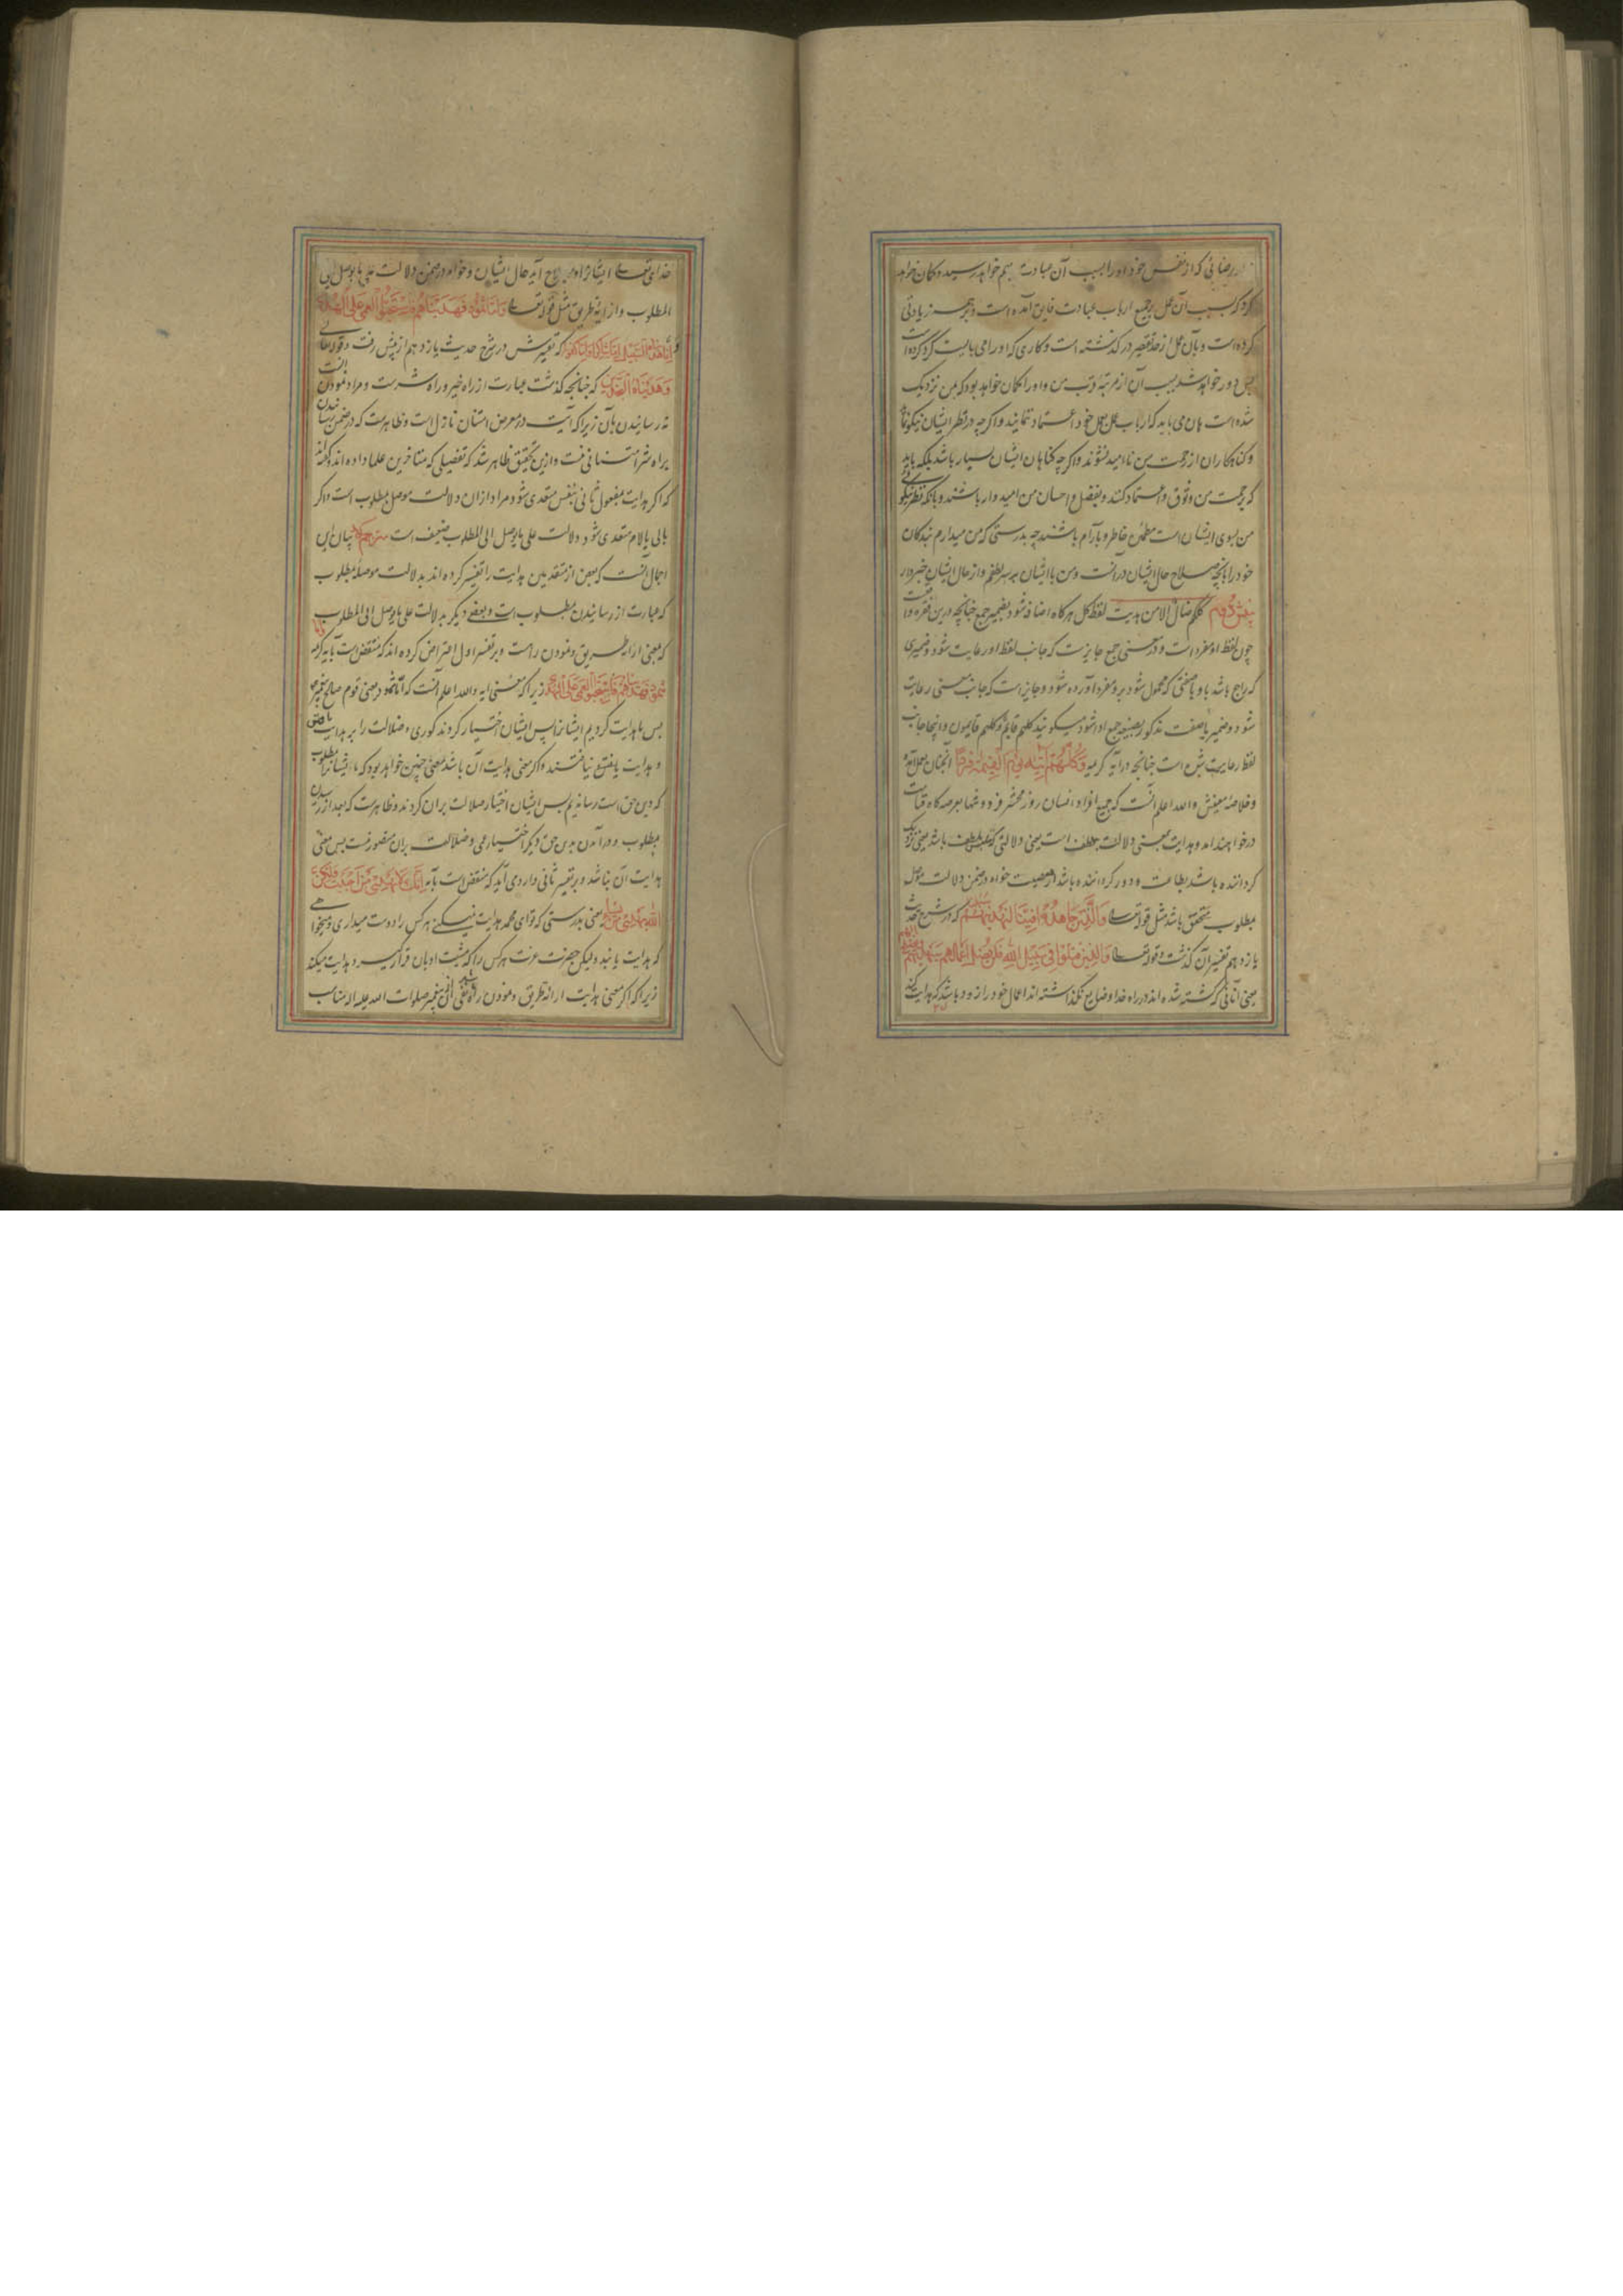 رضائی که از نفس خود او را بسبب آن عبادت بهم خواهد رسید و کمان خواهد
کرد که بسبب آن عمل بر جمیع ارباب عبادت فایق آمده است و بر همه زیادتی
کرده است و بآن عمل از حد تقصیر در کذشته است و کاری که او را می بایست کرد کرده است
پس دور خواهد شد بسبب آن از مرتبه قرب من و او را کمان خواهد بود که بمن نزدیک
شده است هان می باید که ارباب عمل بعمل خود اعتماد ننمایند و اگر چه در نظر ایشان نیکو نماید
و کناهکاران از رحمت من ناامید نشوند و اکر چه کناهان ایشان بسیار باشد بلکه باید
که برحمت من وثوق و اعتماد کنند و بفضل و احسان من امیدوار باشند و بانکه نظر نیکوئی
من بسوی ایشان است مطمئن خاطر و بآرام باشند چه بدرستی که من میدارم بندکان
خود را بانچه صلاح حال ایشان در آنست و من با ایشان بر سر لطفم و از حال ایشان خبردار
بخش دوم کلکم ضال الا من هدیت لفظ کل هر کاه اضافه شود بضمیر جمع چنانچه درین فقره واقعست
چون لفظ او مفرد است و در معنی جمع جایز است که جانب لفظ او رعایت شود و ضمیری
که راجع باشد باو یا صفتی که محمول شود برو مفرد آورده شود و جایز است که جانب معنی رعایت
شود و ضمیر یا صفت مذکور بصیغه جمع ادا شود میکوئید کلهم قائم و کلهم قایمون و اینجا جانب
لفظ رعایت شده است چنانچه در آیه کریمه وَكُلُّهُمْ آتِيهِ يَوْمَ الْقِيمَةِ فَرْدًا آنچنان بعمل آمده
و خلاصه معنیش والله اعلم آنست که جمیع افراد انسان روز محشر فرد و تنها بعرصه کاه قیامت
در خواهند آمد و هدایت بمعنی دلالت بلطف است یعنی دلالتی که بلطف باشد یعنی نزدیک
کرداننده باشد بطاعت و دور کرداننده باشد از معصیت خواه در ضمن دلالت موصل
مطلوب متحقق باشد مثل قوله تعالی وَالَّذِينَ جَاهَدُوا فِينَا لَنَهْدِيَنَّهُمْ سبلنا که در شرح حدیث
یازدهم تفسیر آن کذشت و قوله تعالی وَالَّذِينَ قُتِلُوا فِي سَبِيلِ اللَّهِ فَلَنْ يُضِلَّ أَعْمَالَهُمْ سَيَهْدِيهِمْ
یعنی آنانی که کشته شده اند در راه خدا و ضایع نکذاشته اند اعمال خود را زود باشد که هدایت کند
خدای تعالی ایشانرا و بصلاح آید حال ایشان و خواه در ضمن دلالت علی ما یوصل الی
المطلوب و ارائه طریق مثل قوله تعالی وَأَمَّا ثَمُودُ فَهَدَيْنَاهُمْ فَاسْتَحَبُّوا الْعَمَى عَلَى الْهُدَى
و إِنَّا هَدَيْنَاهُ السَّبِيلَ إِمَّا شَاكِرًا وَإِمَّا كَفُورًا که تفسیرش در شرح حدیث یازدهم از پیش رفت و قوله تعالی
وَهَدَيْنَاهُ النَّجْدَيْنِ که چنانچه کذشت عبارت از راه خیر و راه شرست و مراد نمودن آنست
نه رسانیدن بآن زیرا که آیت در معرض امتنان نازل است و ظاهرست که در ضمن رسانیدن
براه شر امتنانی نیست و ازین تحقیق ظاهر شد که تفصیلی که متاخرین علما داده اند و کفته اند
که اکر هدایت بمفعول ثانی بنفس متعدی شود مراد از ان دلالت موصل بمطلوب است و اکر
بالی یا لام متعدی شود دلالت علی ما یوصل الی المطلوب ضعیف است مترجم کوید بیان این
اجمال آنست که بعض از متقدمین هدایت را تفسیر کرده اند بدلالت موصله بمطلوب
که عبارت از رسانیدن بمطلوب است و بعضی دیکر بدلالت علی ما یوصل الی المطلوب
که بمعنی ارائه طریق و نمودن راهست و بر تفسیر اول اعتراض کرده اند که منتقض است بآیه کریمه و اما
ثَمُودُ فَهَدَيْنَاهُمْ فَاسْتَحَبُّوا الْعَمَى عَلَى الْهُدَى زیرا که معنی آیه والله اعلم آنست که اما ثمود یعنی قوم صالح پیغمبر
پس ما هدایت کردیم ایشانرا پس ایشان اختیار کردند کوری و ضلالت را بر هدایت یافتن
و هدایت یافتنی نیافتند و اکر معنی هدایت آن باشد معنی چنین خواهد بود که ما ایشانرا بمطلوب
که دین حق است رسانیدیم پس ایشان اختیار ضلالت بر ان کردند و ظاهرست که بعد از رسیدن
بمطلوب و در آمدن بدین حق دیکر اختیار عمی و ضلالت بران متصور نیست پس معنی
هدایت آن نباشد و بر تفسیر ثانی وارد می آید که منتقض است بآیه إِنَّكَ لَا تَهْدِي مَنْ أَحْبَبْتَ وَلَكِنَّ
اللَّهَ يَهْدِي مَنْ يَشَاءُ یعنی بدرستی که تو ای محمد هدایت نمیکنی هر کس را دوست میداری و میخواهی
که هدایت یابد ولیکن حضرت عزت هر کس را که مشیت او بان قرار کیرد هدایت میکند
زیرا که اکر معنی هدایت ارائه طریق و نمودن راه باشد نفی آن از پیغمبر صلوات الله علیه مناسب